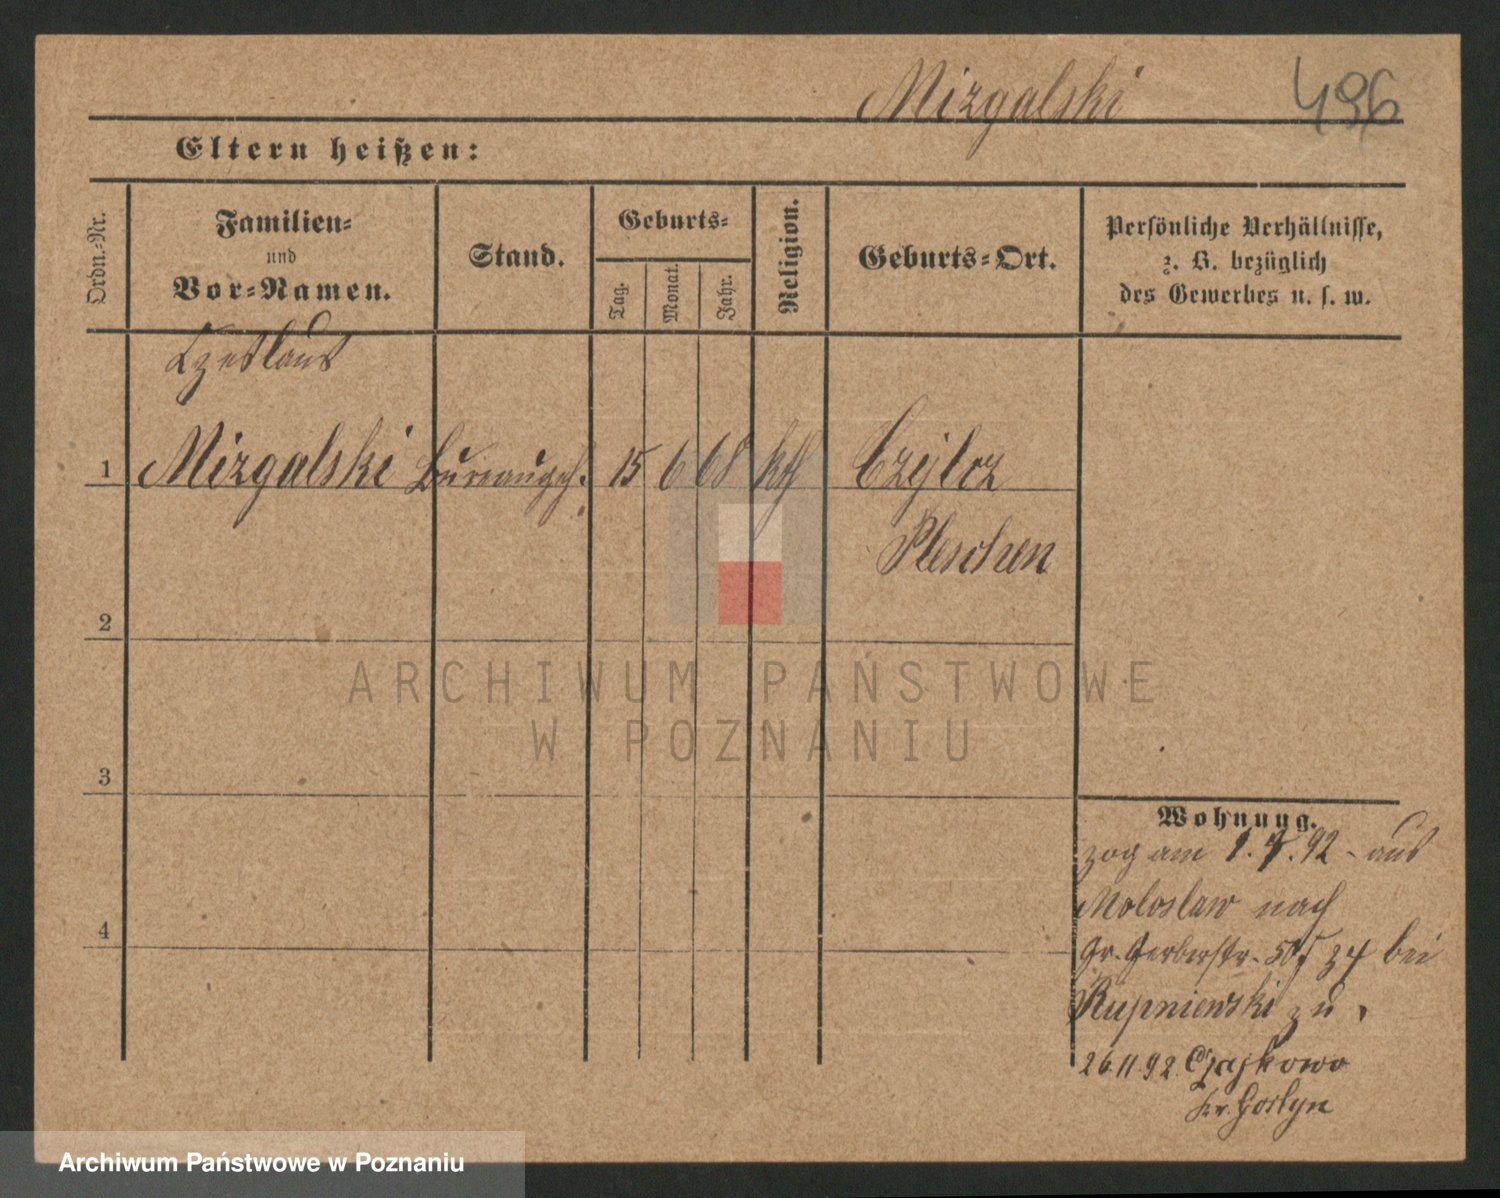 Mizgalski 496
Eltern heißen:
Ordn.-Nr.
Familien-
und
Vor-Namen.
Stand.
Geburts-
Tag.
Monat.
Jahr.
Religion.
Geburts-Ort.
Persönliche Verhältnisse,
z. B. bezüglich
des Gewerbes u. s. w.
Czeslaus
1 Mizgalski Bureaugeh. 15 6 68 kth
Pleschen
2
3
4
Wohnung.
zog am 1. 7. 92 - aus
nach
Gr. Gerberstr. bei
Rupniewski zu.
26.11.92. Czajkowo
Kr. Gostyn
ARCHIWUM PAŃSTWOWE
W POZNANIU
Archiwum Państwowe w Poznaniu